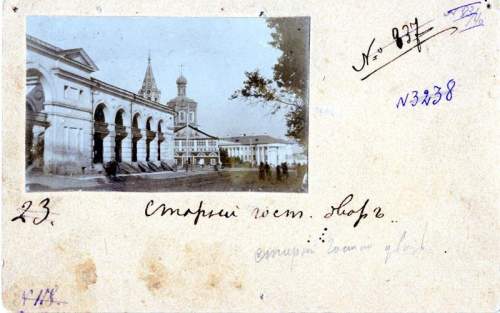 № 837
N3238
23. Старый гост. дворъ.
старый гостин двор
N 118